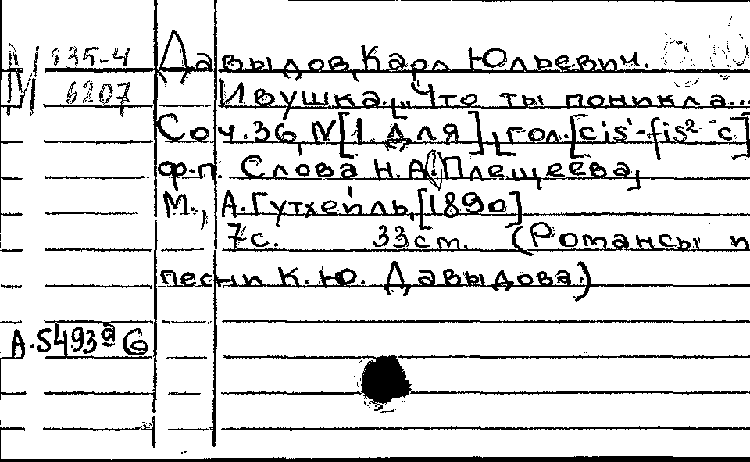 М 135-4 Давыдов, Карл Юльевич.
6207 Ивушка. „Что ты поникла...
Соч. 36, N [1. Для], гол. [cis¹-fis² с]
ф-п. Слова Н.А. Плещеева,
М., А. Гутхейль, [1890]
7с. 33cm. (Романсы и
песни К.Ю. Давыдова.)
А.5493а